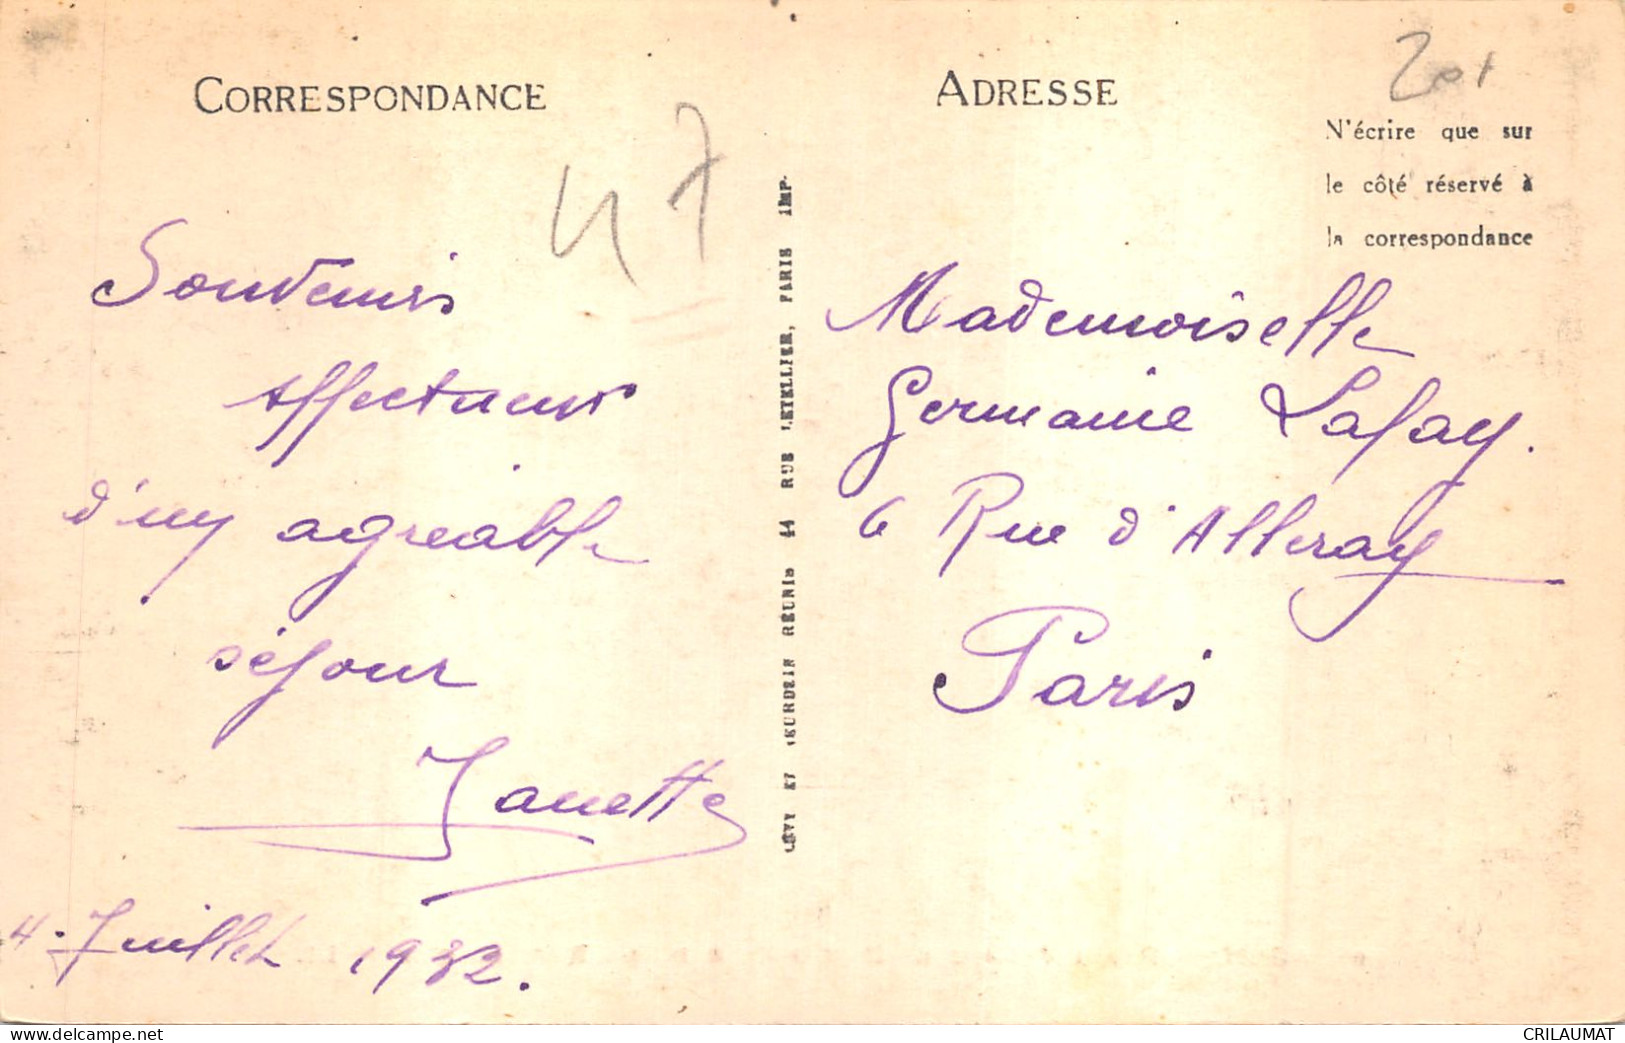 CORRESPONDANCE
47
Souvenirs
affectueux
d'un agréable
séjour
Janette
4. Juillet 1932.
LÉVY ET NEURDEIN RÉUNIS 44 RUE LETELLIER, PARIS IMP.
ADRESSE
N'écrire que sur
le côté réservé à
la correspondance
Mademoiselle
Germaine Lafay.
6 Rue d'Alleray
Paris
www.delcampe.net
CRILAUMAT